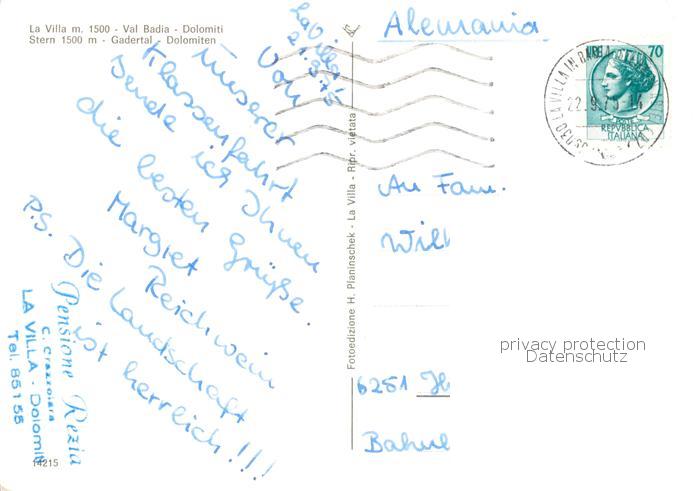 La Villa m. 1500 - Val Badia - Dolomiti
Stern 1500 m - Gadertal - Dolomiten
La Villa
21.9.75
Von
unserer
Klassenfahrt
sende ich Ihnen
die besten Grüße.
Margret Reichwein
P.S. Die Landschaft
ist herrlich!!!
Pensione Rezia
LA VILLA - Dolomiti
Tel. 85155
14215
Fotoedizione H. Planinschek - La Villa - Ripr. vietata
Alemania
70
REPVBBLICA
ITALIANA
LA VILLA IN BADIA
22.9.75
An Fam.
Will
privacy protection
Datenschutz
6251